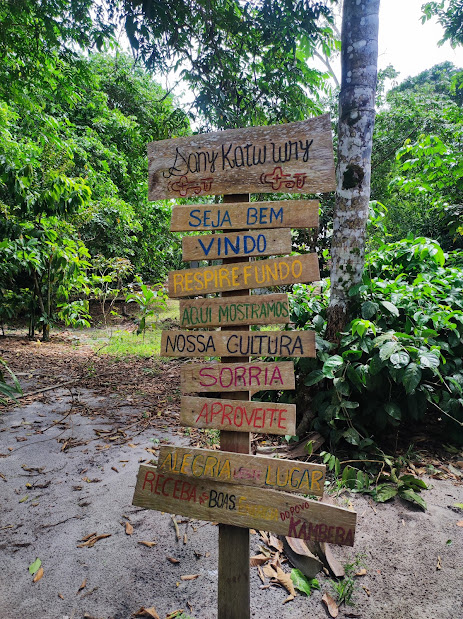 Sany Katu wny
SEJA BEM
VINDO
RESPIRE FUNDO
AQUI MOSTRAMOS
NOSSA CULTURA
SORRIA
APROVEITE
ALEGRIA LUGAR
RECEBA BOAS DO POVO
KAMBEBA